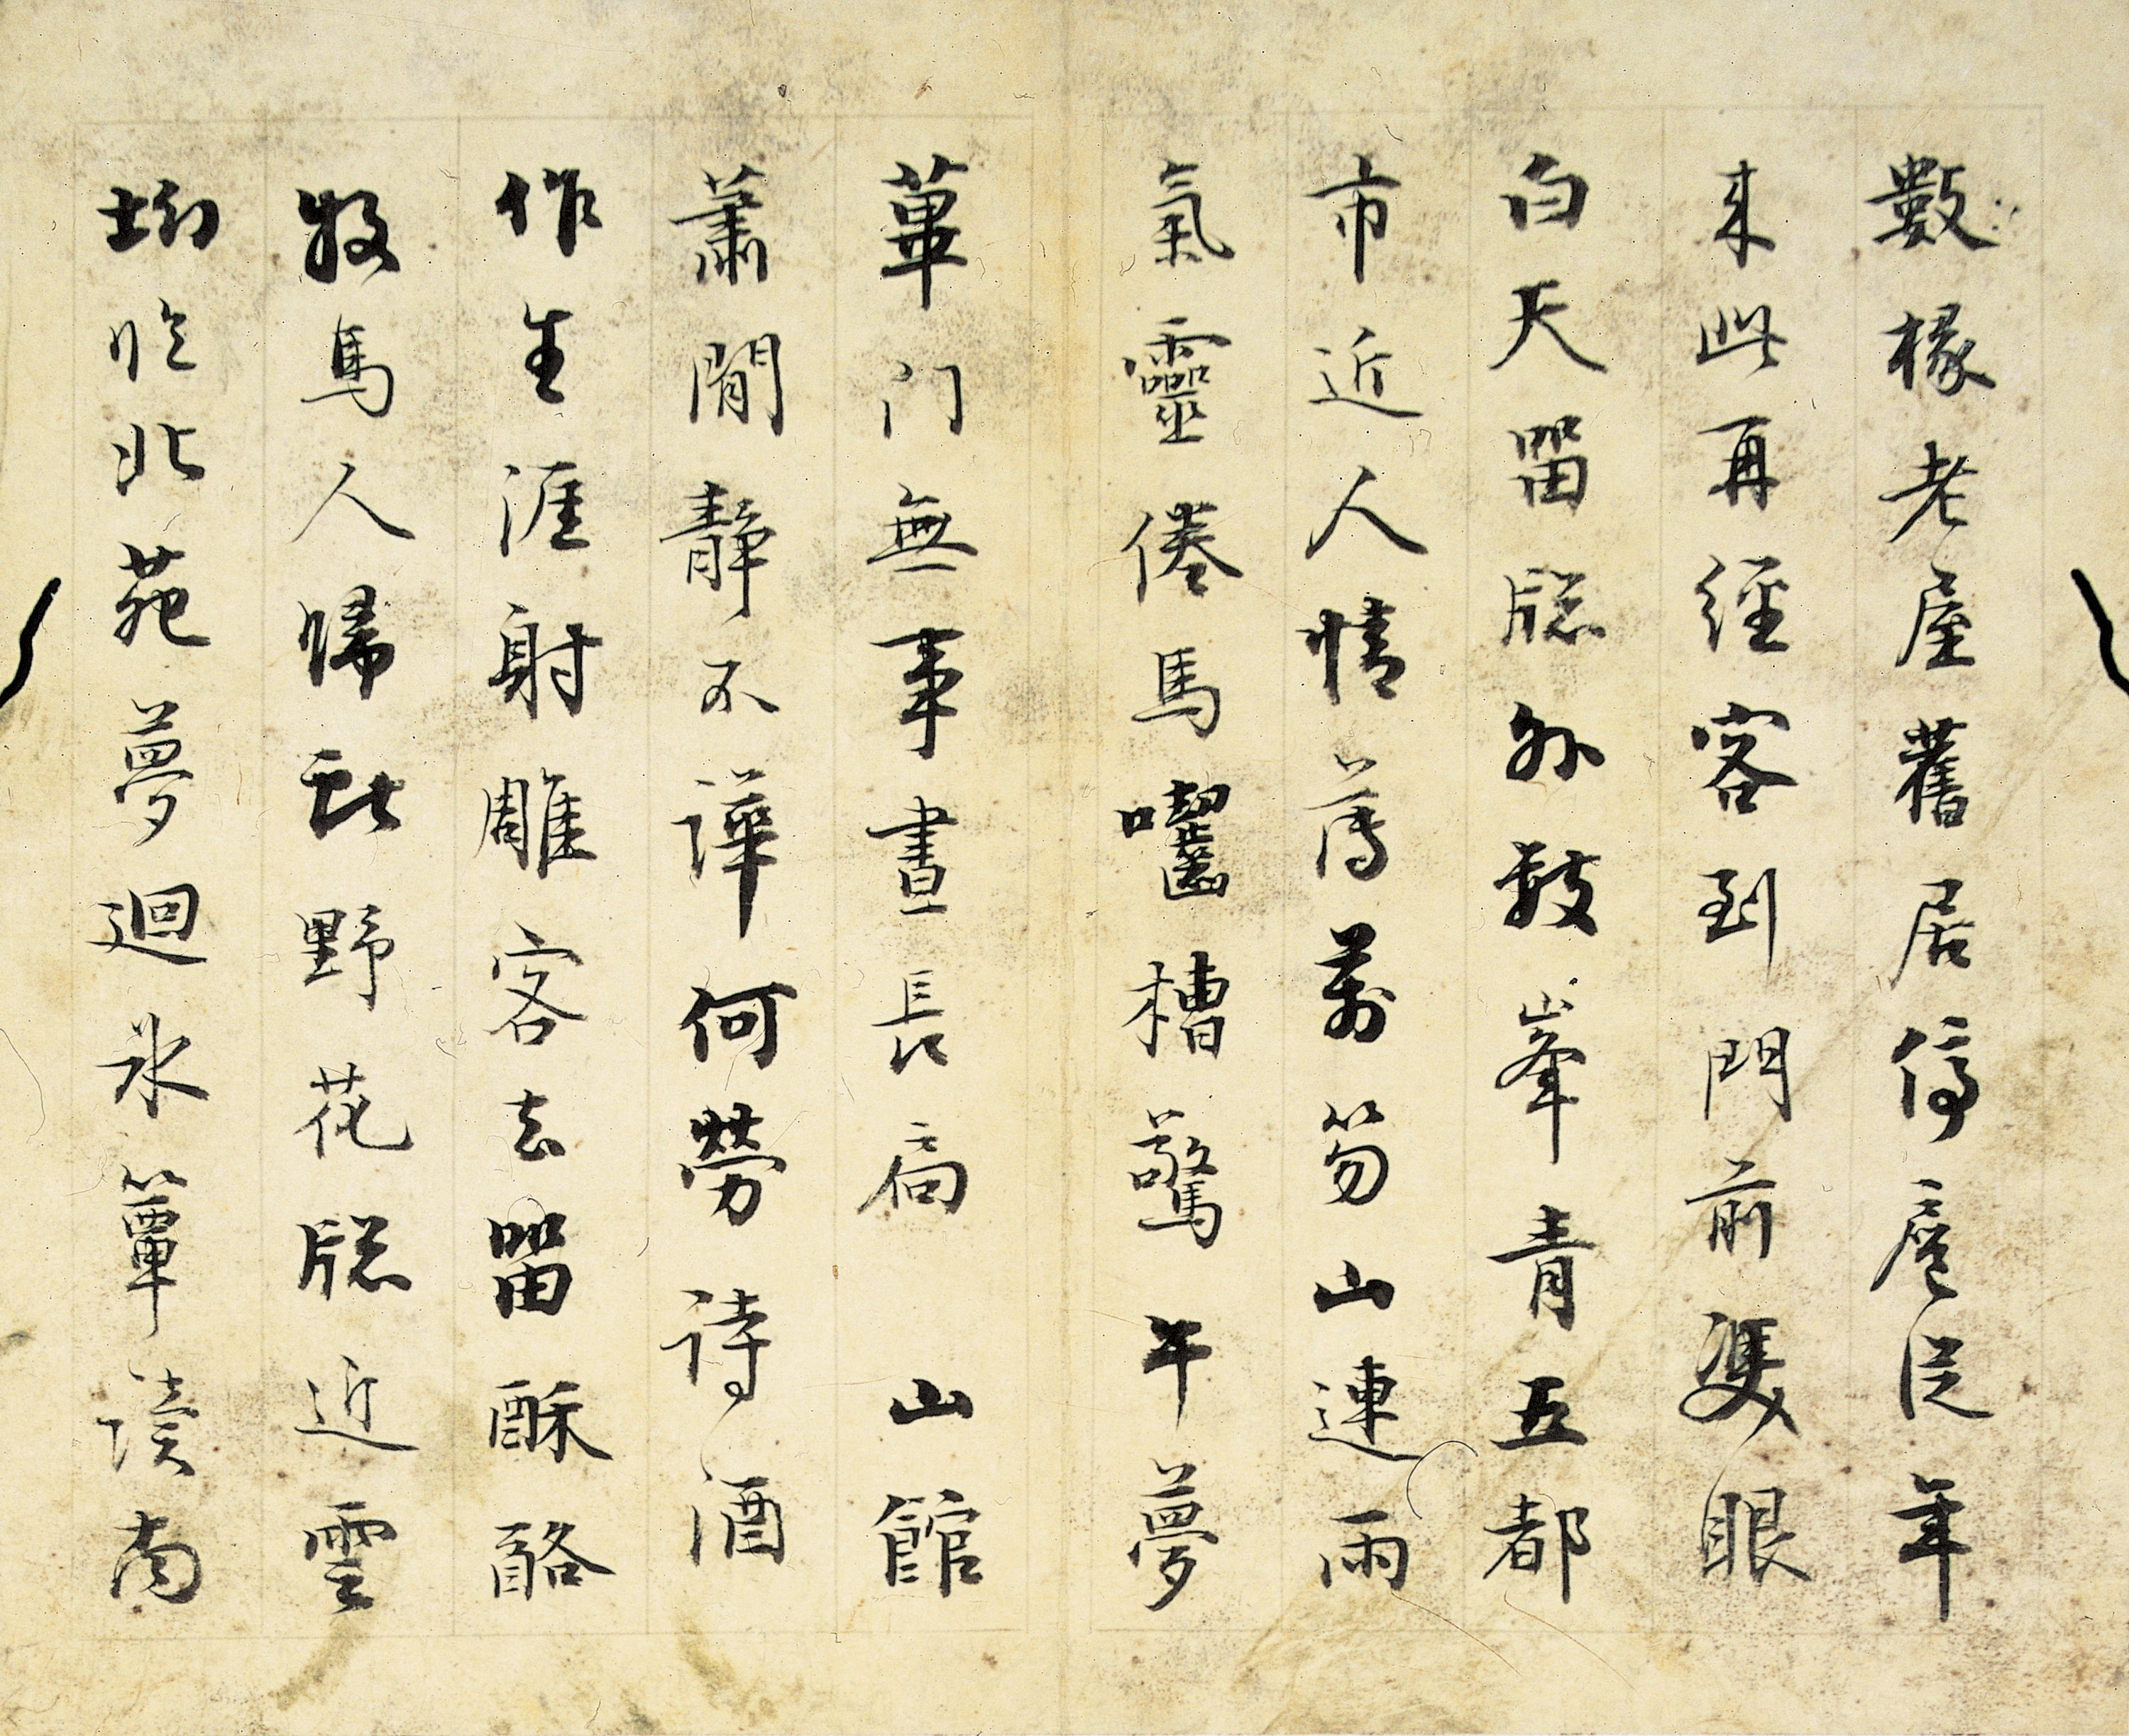 數椽老屋舊居停扈從年
來此再經客到門前雙眼
白天留牕外數峯青五都
市近人情薄萬笏山連雨
氣靈倦馬嚙槽驚午夢
蓽门無事晝長扃　山館
蕭閒靜不譁何勞詩酒
作生涯射雕客去留酥酪
牧馬人歸話野花牕近雲
坳臨北苑夢迴氷簟讀南